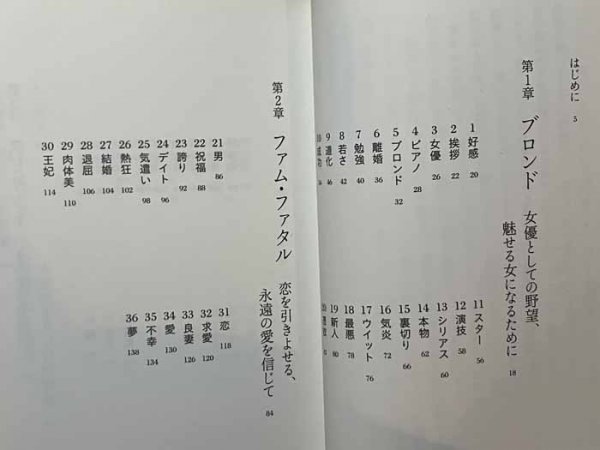 はじめに 5
第1章 ブロンド 女優としての野望、
魅せる女になるために 18
1 好感 20
2 挨拶 22
3 女優 26
4 ピアノ 28
5 ブロンド 32
6 離婚 36
7 勉強 40
8 若さ 42
9 道化 46
11 スター 56
12 演技 58
13 シリアス 60
14 本物 62
15 裏切り 66
16 気炎 72
17 ウイット 76
18 最悪 78
19 新人 80
第2章 ファム・ファタル 恋を引きよせる、
永遠の愛を信じて 84
21 男 86
22 祝福 88
23 誇り 92
24 デイト 96
25 気遣い 98
26 熱狂 102
27 結婚 104
28 退屈 106
29 肉体美 110
30 王妃 114
31 恋 118
32 求愛 120
33 良妻 126
34 愛 130
35 不幸 134
36 夢 138